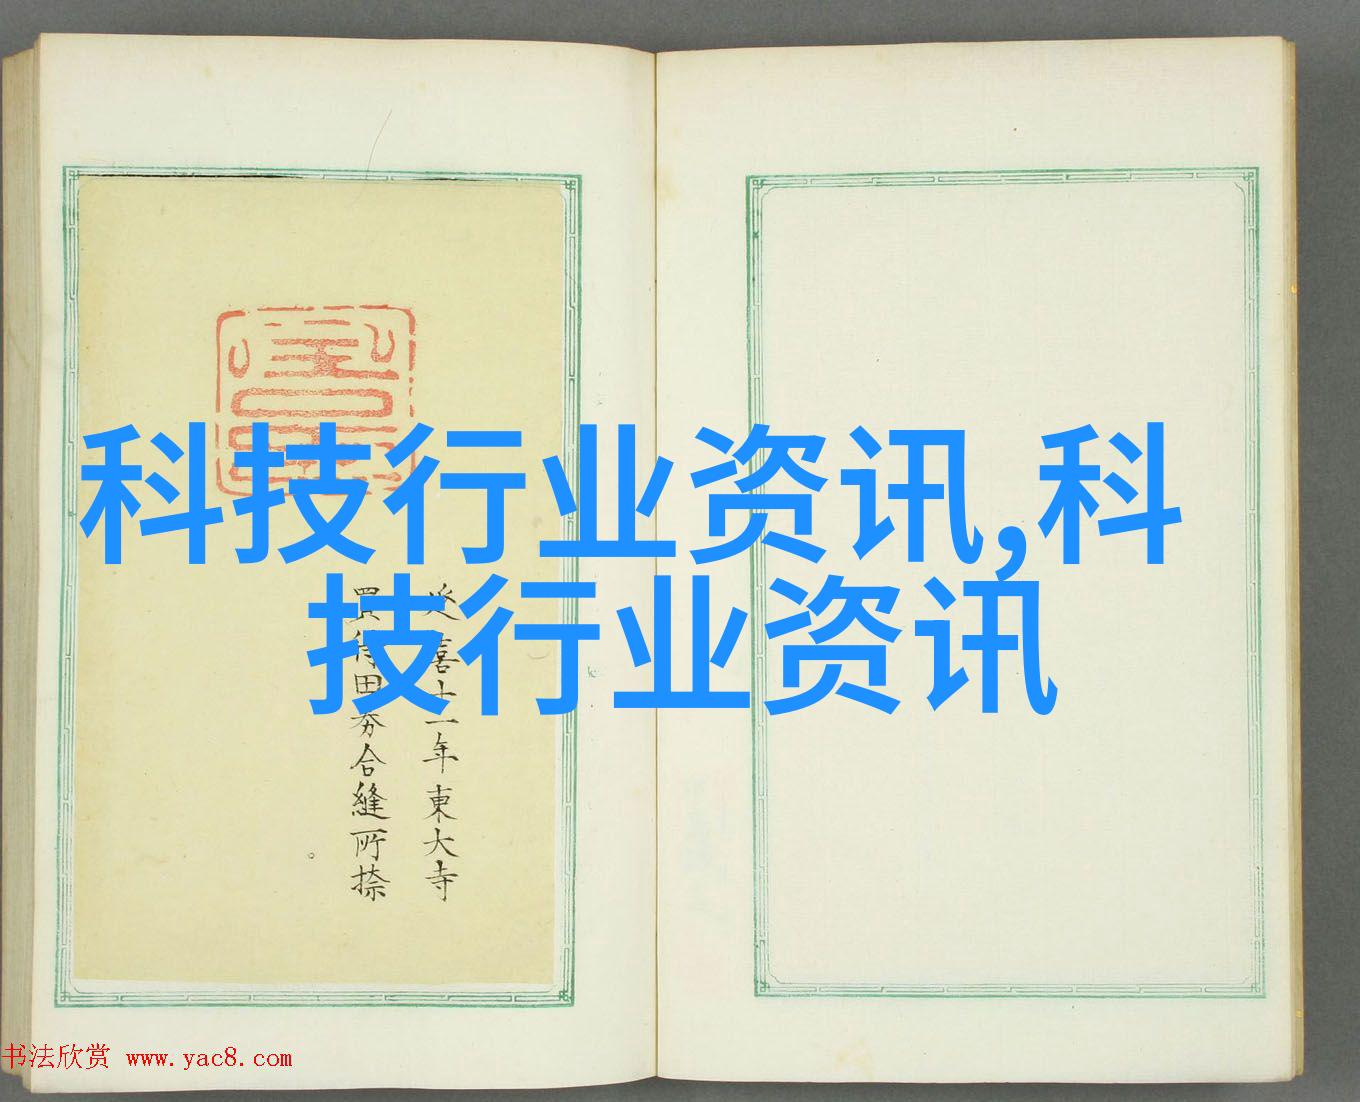 科技行业资讯,科
技行业资讯
延喜十一年東大寺
買得田券合縫所捺
书法欣赏 www.yac8.com